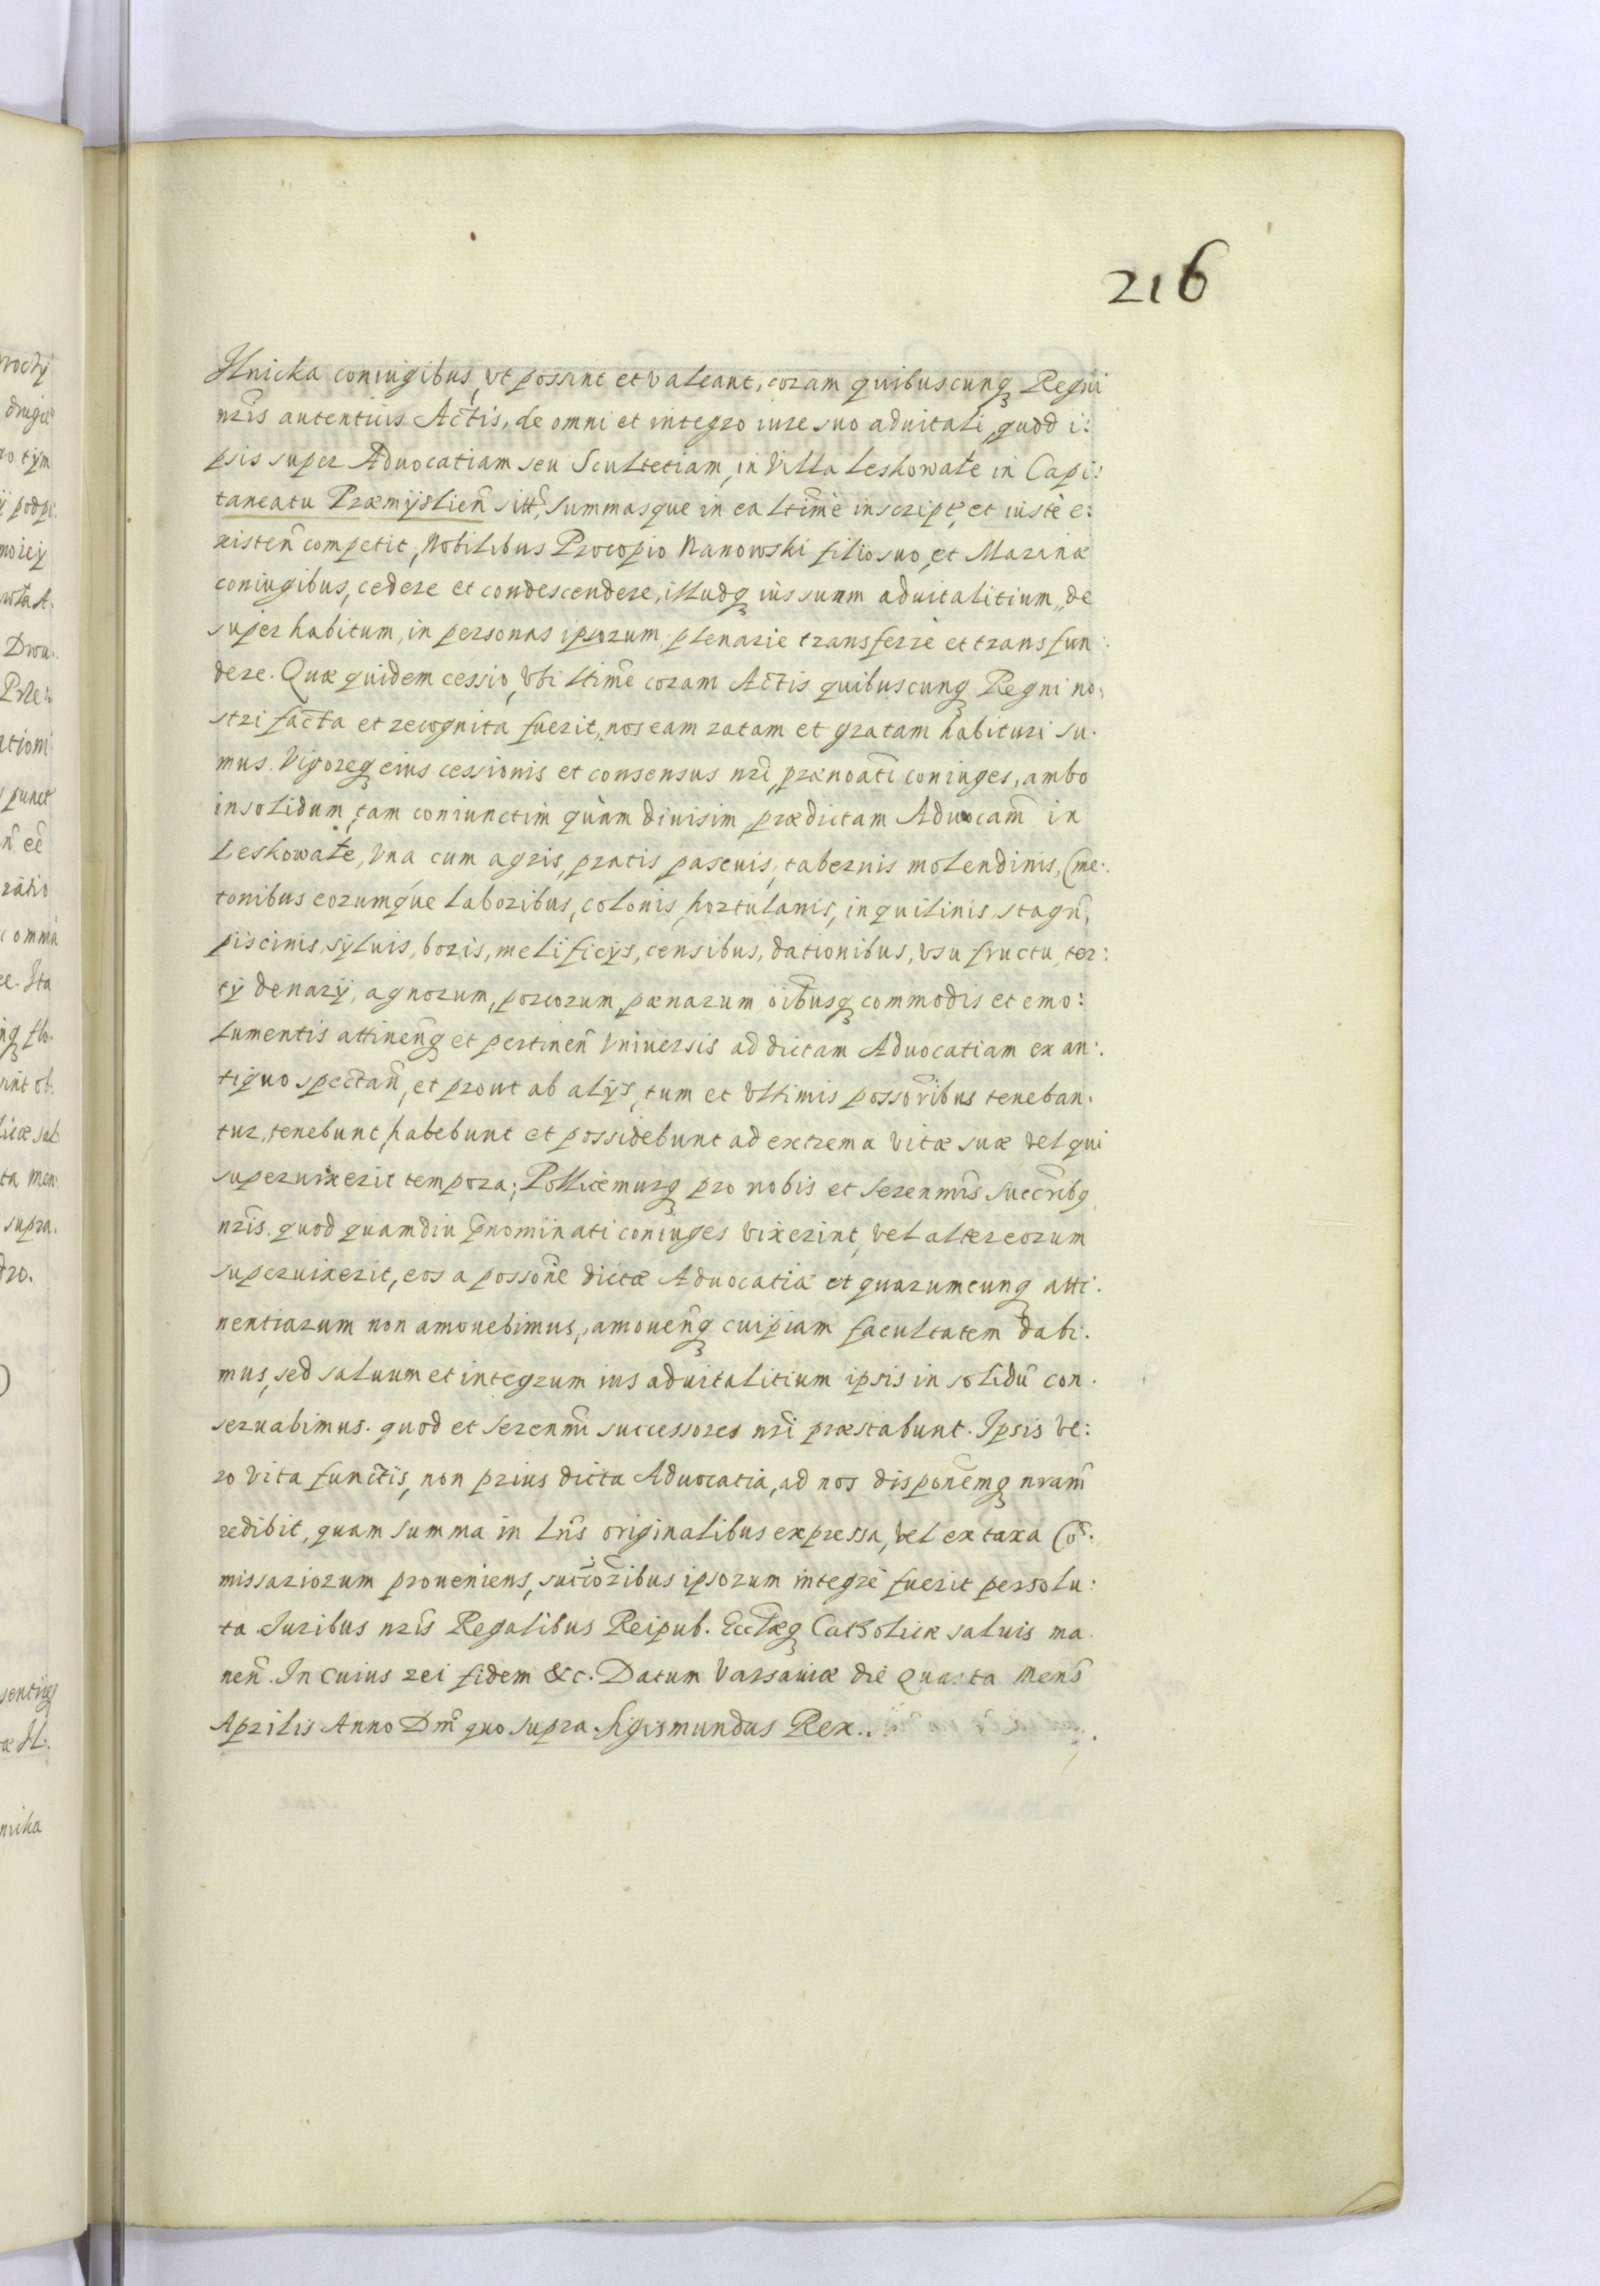 216
Hnicka coniugibus, vt possint et valeant, coram quibuscunq Regni
nris autenticis Actis, de omni et integro iure suo aduitali, quod i:
psis super Aduocatiam seu Scultetiam, in Villa Leskowate in Capi:
taneatu Præmÿslień sitt, summasque in ea ltimè inscript, et iustè e:
xisteñ competit, Nobilibus Procopio Nanowski filio suo, et Marinæ
coniugibus, cedere et condescendere, illudq ius suum aduitalitium, de
super habitum, in personas ipsorum plenarie transferre et transfun
dere. Quæ quidem cessio, vbi ltime coram Actis quibuscunq Regni no:
stri facta et recognita fuerit, nos eam ratam et gratam habituri su.
mus. Vigoreq eius cessionis et consensus nri, prænoati coniuges, ambo
insolidum, tam coniunctim quàm diuisim prædictam Aduocam in
Leskowate, vna cum agris, pratis, pascuis, tabernis molendinis, Cme.
tonibus eorumque laboribus, colonis, hortulanis, inquilinis stagñ,
piscinis sÿluis, boris, melificÿs, censibus, dationibus, vsu fructu, ter:
tÿ denarÿ, agnorum, porcorum, pænarum oibusq commodis et emo:
lumentis attineñq et pertineñ Vniuersis ad dictam Aduocatiam ex an:
tiquo spectañ, et prout ab alÿs, tum et vltimis possoribus teneban.
tur, tenebunt, habebunt et possidebunt ad extrema vitæ suæ vel qui
superuixerit tempora; Pollicemurq pro nobis et serenmis succribq
nris. quod quamdiu pnominati coniuges vixerint, vel alter eorum
superuixerit, eos a possone dictæ Aduocatiæ et quarumcunq atti.
nentiarum non amouebimus, amoueñq cuipiam facultatem dabi.
mus, sed saluum et integrum ius aduitalitium ipsis in solidũ con.
seruabimus. quod et serenmi successores nri præstabunt. Ipsis ve:
ro vita functis, non prius dicta Aduocatia, ad nos disponemq nram
redibit, quam summa in Lris originalibus expressa, vel ex taxa Co.
missariorum proueniens, succoribus ipsorum integre fuerit persolu:
ta Juribus nris Regalibus Reipub. Ecclæq Catholicæ saluis ma.
neñ. In cuius rei fidem &c. Datum Varsauiæ die Quarta Mens
Aprilis Anno Dni quo supra. Sigismundus Rex..